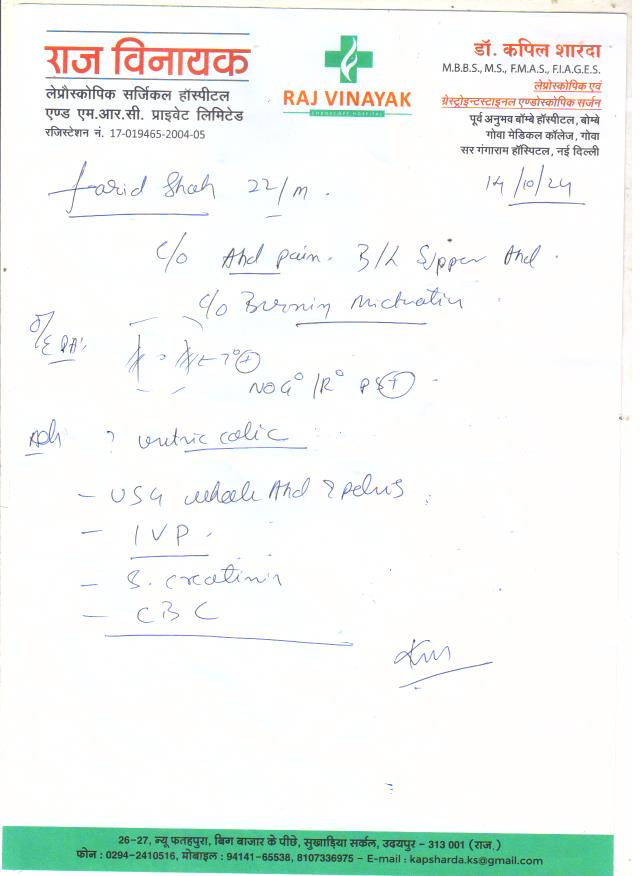 राज विनायक
लेप्रौस्कोपिक सर्जिकल हॉस्पीटल
एण्ड एम.आर.सी. प्राइवेट लिमिटेड
रजिस्टेशन नं. 17-019465-2004-05
RAJ VINAYAK
ENDOSCOPY HOSPITAL
डॉ. कपिल शारदा
M.B.B.S., M.S., F.M.A.S., F.I.A.G.E.S.
लेप्रोस्कोपिक एवं
ग्रेस्ट्रोइन्टस्टाइनल एण्डोस्कोपिक सर्जन
पूर्व अनुभव बॉम्बे हॉस्पीटल, बोम्बे
गोवा मेडिकल कॉलेज, गोवा
सर गंगाराम हॉस्पिटल, नई दिल्ली
Farid Shah 22/M.
14/10/24
C/O Abd pain. B/L Upper Abd.
C/O Burning Micturation
O/E PA:
NO G° /R° PS+
Adv ? ureteric colic
- USG whole Abd & pelvis
- IVP.
- S. creatinin
- CBC
26-27, न्यू फतहपुरा, बिग बाजार के पीछे, सुखाड़िया सर्कल, उदयपुर - 313 001 (राज.)
फोन : 0294-2410516, मोबाइल : 94141-65538, 8107336975 - E-mail : kapsharda.ks@gmail.com